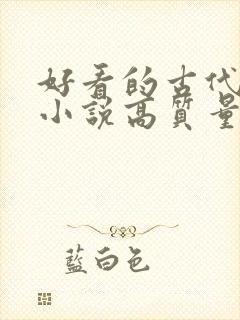 好看的古代
小說高質量
藍白色